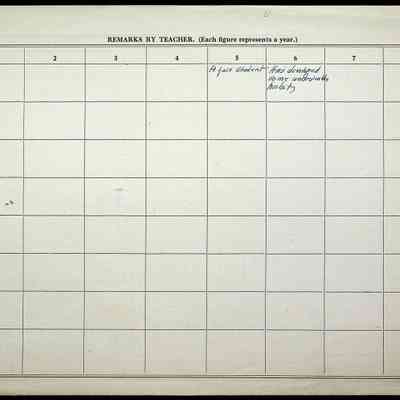 REMARKS BY TEACHER. (Each figure represents a year.)
2 3 4 5 6 7
A fair student
Has developed
some